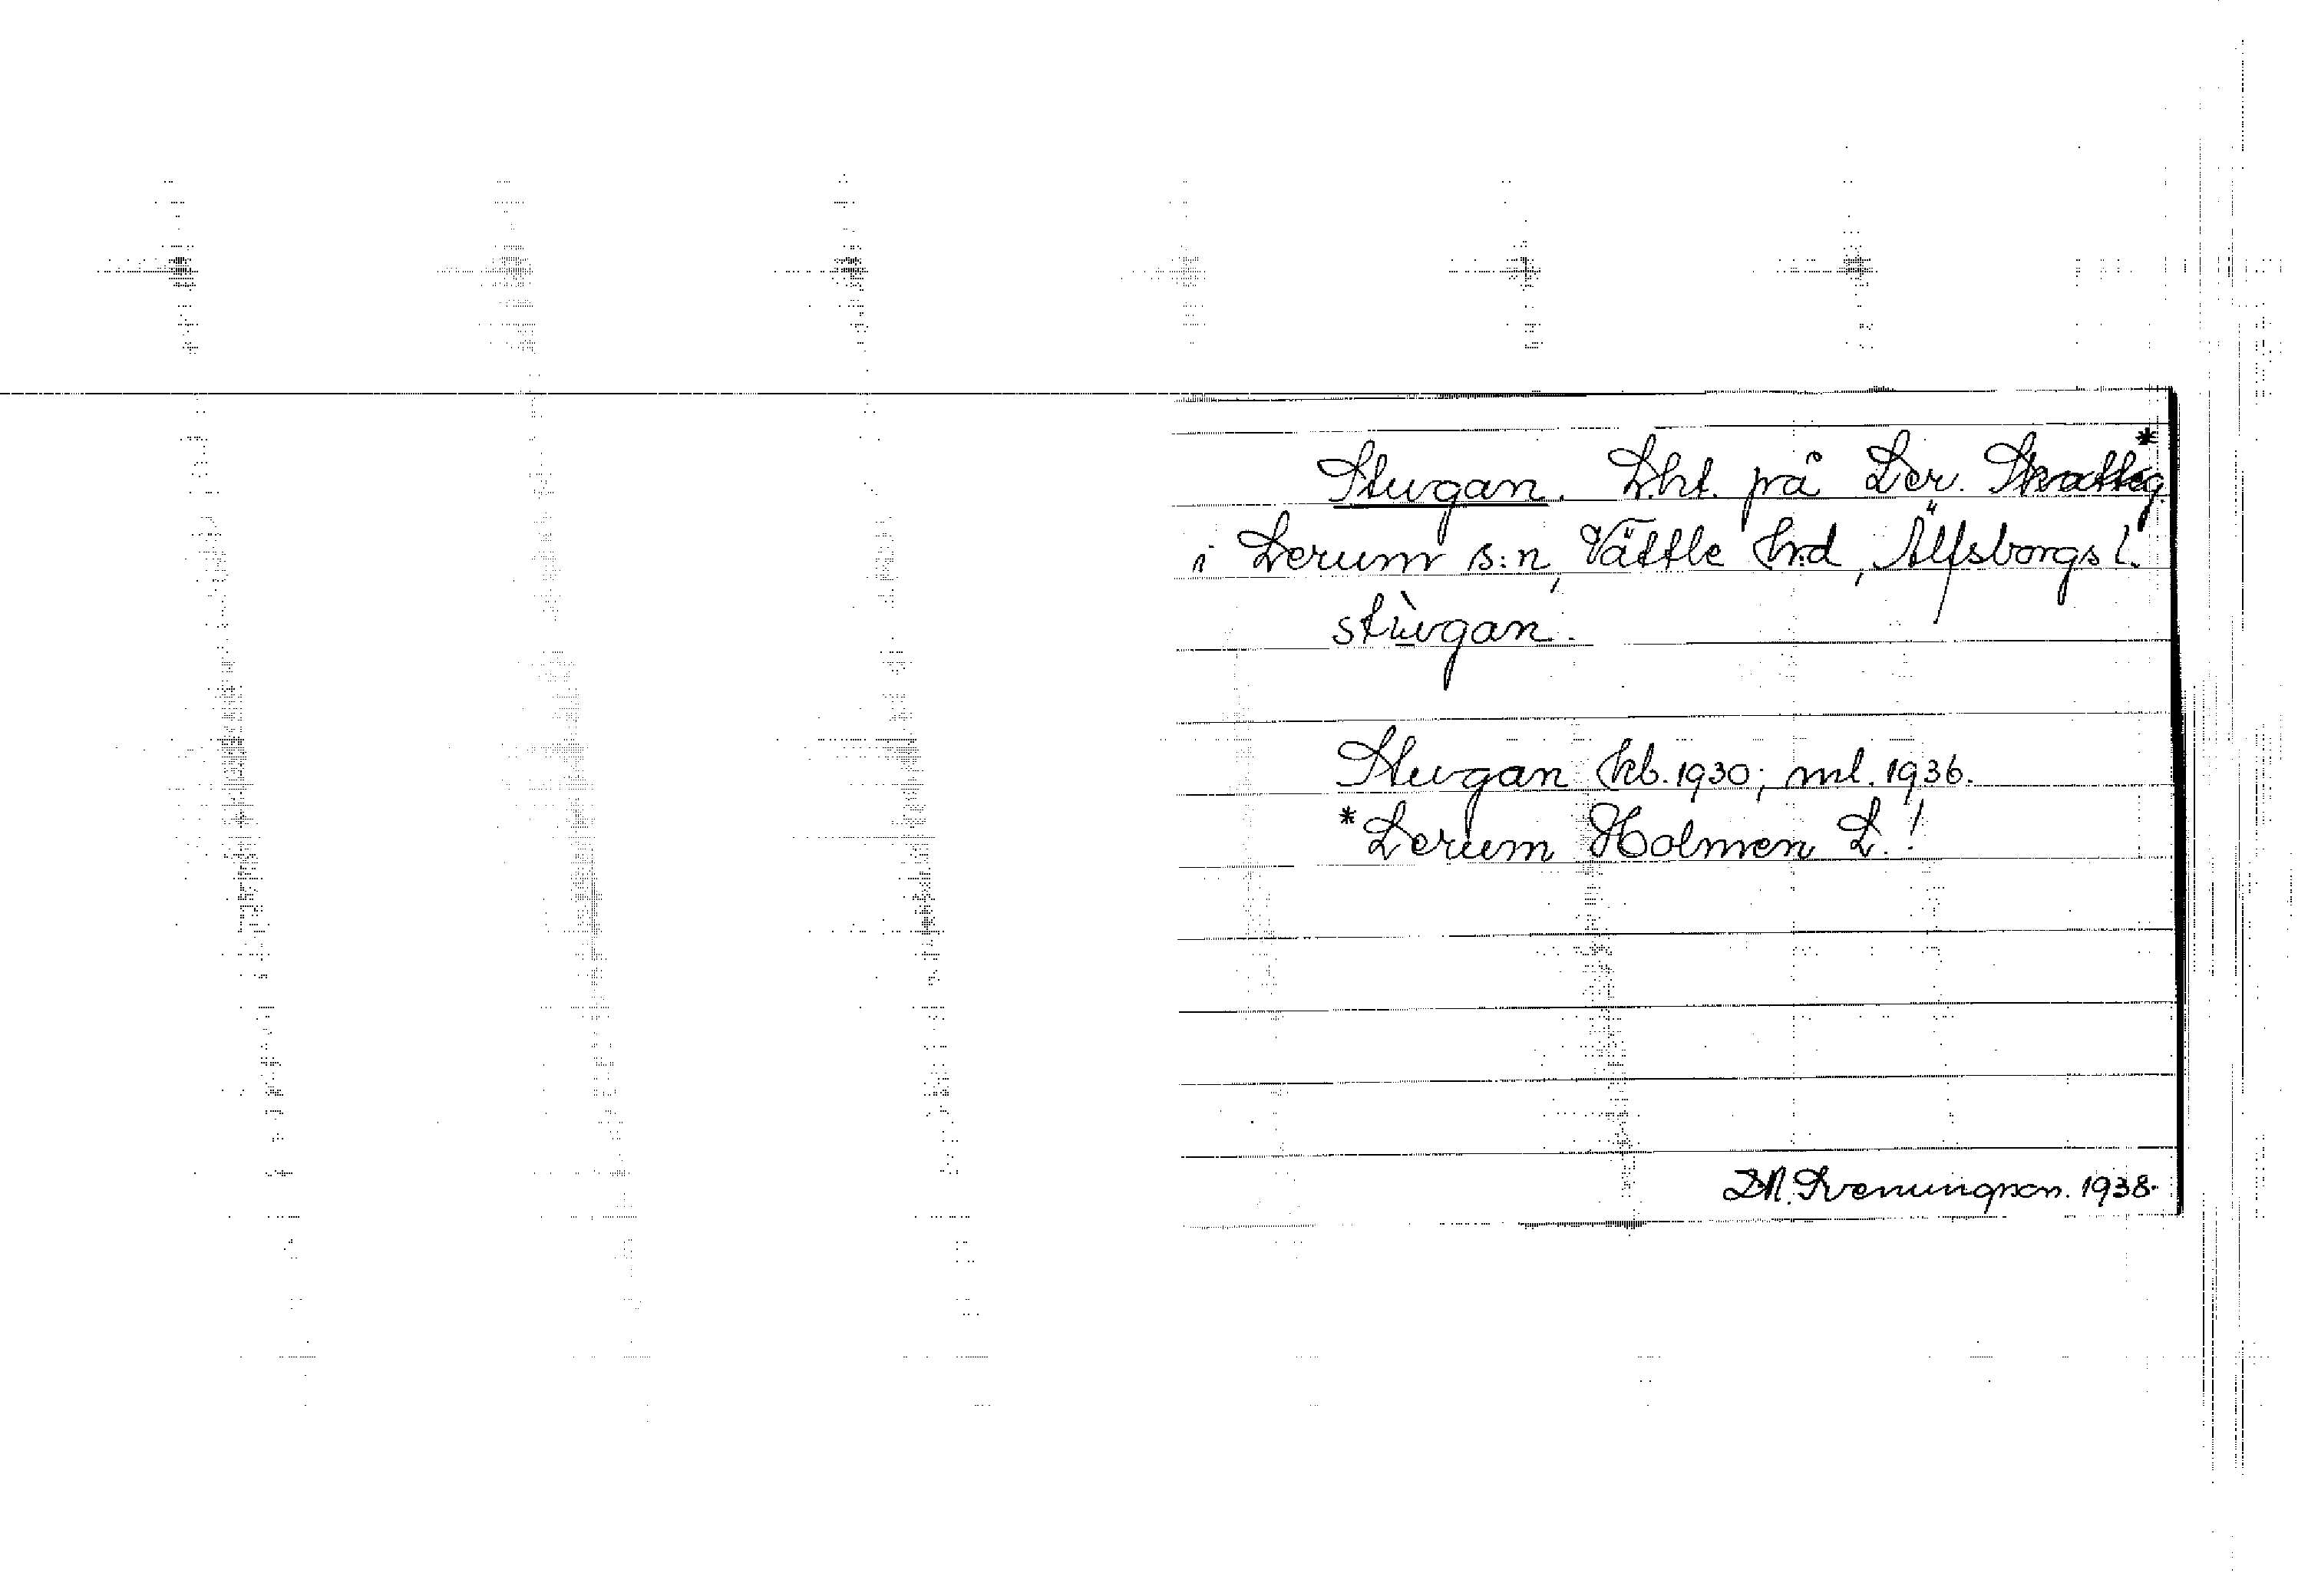 Stugan. Lht. på Ler. Skatteg.*
i Lerum s:n, Vättle hd, Älfsborgs l.
stùgan.
Stugan kb. 1930; ml. 1936.
*Lerum Holmen L.!
D.N. Svenungson. 1938.